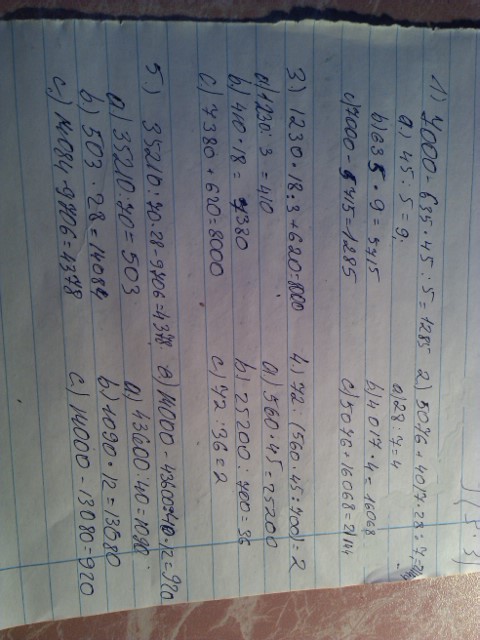 1) 7000 - 635 · 45 : 5 = 1285
a) 45 : 5 = 9
b) 635 · 9 = 5715
c) 7000 - 5715 = 1285
2) 5076 + 4017 · 28 : 7 = 21144
a) 28 : 7 = 4
b) 4017 · 4 = 16068
c) 5076 + 16068 = 21144
3) 1230 · 18 : 3 + 620 = 8000
a) 1230 : 3 = 410
b) 410 · 18 = 7380
c) 7380 + 620 = 8000
4) 72 : (560 · 45 : 700) = 2
a) 560 · 45 = 25200
b) 25200 : 700 = 36
c) 72 : 36 = 2
5) 35210 : 70 · 28 - 9706 = 4378
a) 35210 : 70 = 503
b) 503 · 28 = 14084
c) 14084 - 9706 = 4378
e) 14000 - 43600 : 40 · 12 = 920
a) 43600 : 40 = 1090
b) 1090 · 12 = 13080
c) 14000 - 13080 = 920